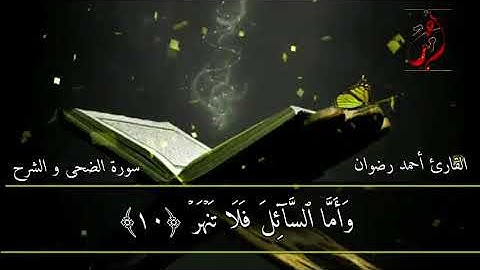 القارئ أحمد رضوان
سورة الضحى و الشرح
وَأَمَّا ٱلسَّآئِلَ فَلَا تَنۡهَرۡ ﴿١٠﴾